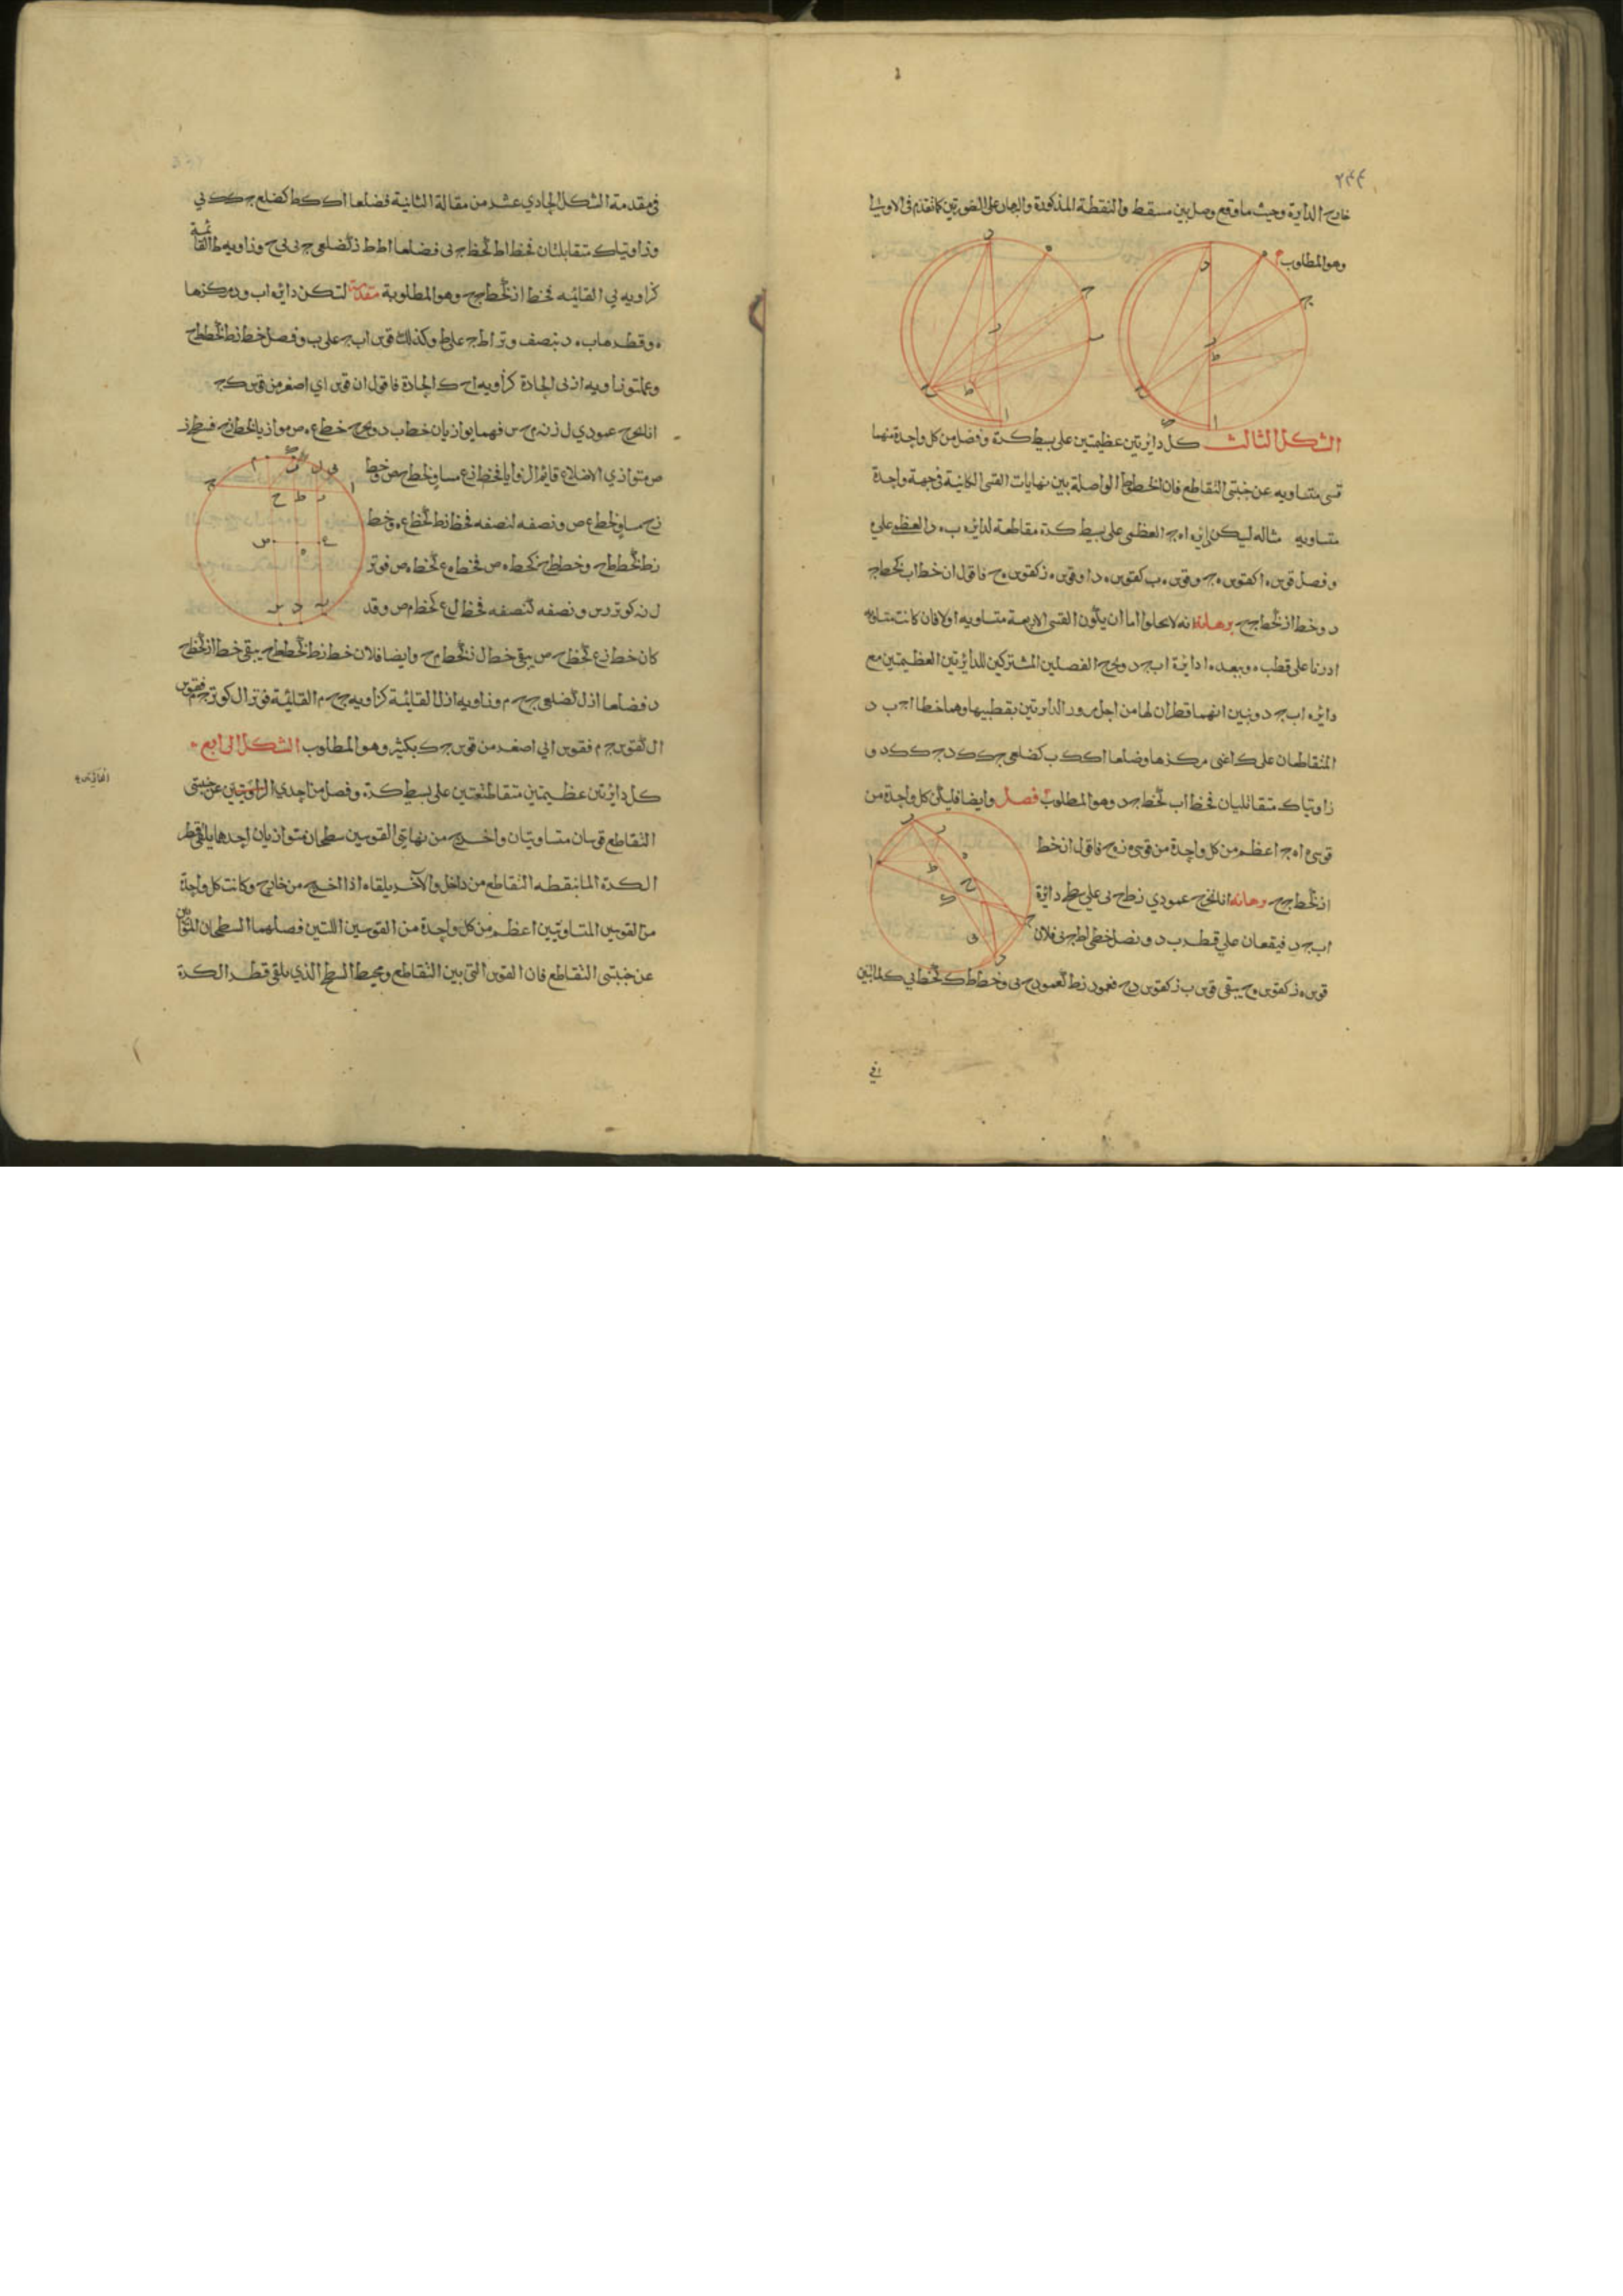 ٢٤٤
خارج الدايرة وحيث ما وقع وصل بين مسقط والنقطة المذكورة والبرهان على الصورتين كما تقدم فى الاولى
وهو المطلوب
الشكل الثالث كل دايرتين عظيمتين على بسيط كرة وفصل من كل واحدة منهما
قسى متساويه عن جنبتى التقاطع فان الخطوط الواصلة بين نهايات القسى الكاينة فى جهة واحدة
متساويه مثاله ليكن دايره ا ه ج العظمى على بسيط كرة مقاطعة لدايره ب ه د العظمى على ه
وفصل قوس ه ا كقوس ه ج وقوس ه ب كقوس ه د وقوس ه ز كقوس ه ح فاقول ان خط ا ب كخط ج
د وخط ا ز كخط ج ح برهانه انه لا يخلوا اما ان يكون القسى الاربعة متساويه اولا فان كانت متساويه
ادرنا على قطب ه وببعد ه ا دايرة ا ب ج د ونخرج الفصلين المشتركين للدايرتين العظيمتين مع
دايره ا ب ج د ونبين انهما قطران لها من اجل مرور الدايرتين بقطبيها وهما خطا ا ج ب د
المتقاطعان على ك اعنى مركزها وضلعا ا ك ك ب كضلعى ج ك ك د
زاويتا ك متقابلتان فخط ا ب كخط ج د وهو المطلوب فصل وايضا فليكن كل واحدة من
قوسى ه ا ه ج اعظم من كل واحدة من قوسى ه ز ه ح فاقول ان خط
ا ز كخط ج ح برهانه انا نخرج عمودي ز ط ح ى على سطح دائرة
ا ب ج د فيقعان على قطر ب د ونصل خطى ا ط ج ى فلان
قوس ه ز كقوس ه ح يبقى قوس ب ز كقوس د ح فعمود ز ط كعمود ح ى وخط ط ك كخط ى ك لما تبين
فى مقدمة الشكل الحادي عشر من مقالة الثانية فضلعا ا ك ك ط كضلعى ج ك ك ى
وزاويتا ك متقابلتان فخط ا ط كخط ج ى فضلعا ا ط ط ز كضلعى ج ى ى ح وزاويه ط القائمة
كزاويه ى القايمه فخط ا ز كخط ج ح وهو المطلوب مقدمة لتكن دايره ا ب ج د مركزها
ه وقطرها ب ه د بنصف وتر ا ط ج على ط وكذلك قوس ا ب ج على ب وفصل خط ز ط كخط ط ح
وعملت زاويه ا ز ى الحادة كزاويه ا ح ك الحادة فاقول ان قوس ا ى اصغر من قوس ك ج
انا نخرج عمودي ل ز ن م ح س فهما يوازيان خط ب د ونخرج خط ع ه ص موازيا لخط ز ح فسطح ز
ص متوازي الاضلاع قايم الزوايا فخط ز ع مساو لخط ح ص وخط
ز ح مساو لخط ع ص ونصفه لنصفه فخط ز ط كخط ع ه وخط
ز ط كخط ط ح وخط ط ح كخط ه ص فخط ه ع كخط ه ص فوتر
ل ن كوتر م س ونصفه كنصفه فخط ل ع كخط م ص وقد
كان خط ز ع كخط ح ص يبقى خط ل ز كخط م ح وايضا فلان خط ز ط كخط ط ح يبقى خط ا ز كخط ح
فضلعا ا ز ل كضلعى ج ح م وزاويه ا ز ل القايمة كزاويه ج ح م القايمة فوتر ا ل كوتر ج م فقوس
ا ل كقوس ج م فقوس ا ى اصغر من قوس ج ك بكثير وهو المطلوب الشكل الرابع
كل دايرتين عظيمتين متقاطعتين على بسيط كرة وفصل من احدي عن جنبتى
التقاطع قوسان متساويتان واخرج من نهايتى القوسين سطحان متوازيان احدهما يلقى قطر
الكرة المار بنقطه التقاطع من داخل والآخر يلقاه اذا اخرج من خارج وكانت كل واحدة
من القوسين المتساويتين اعظم من كل واحدة من القوسين اللتين فصلهما السطحان المتوازيان
عن جنبتى التقاطع فان القوس التى بين التقاطع ومحيط السطح الذي يلقى قطر الكرة